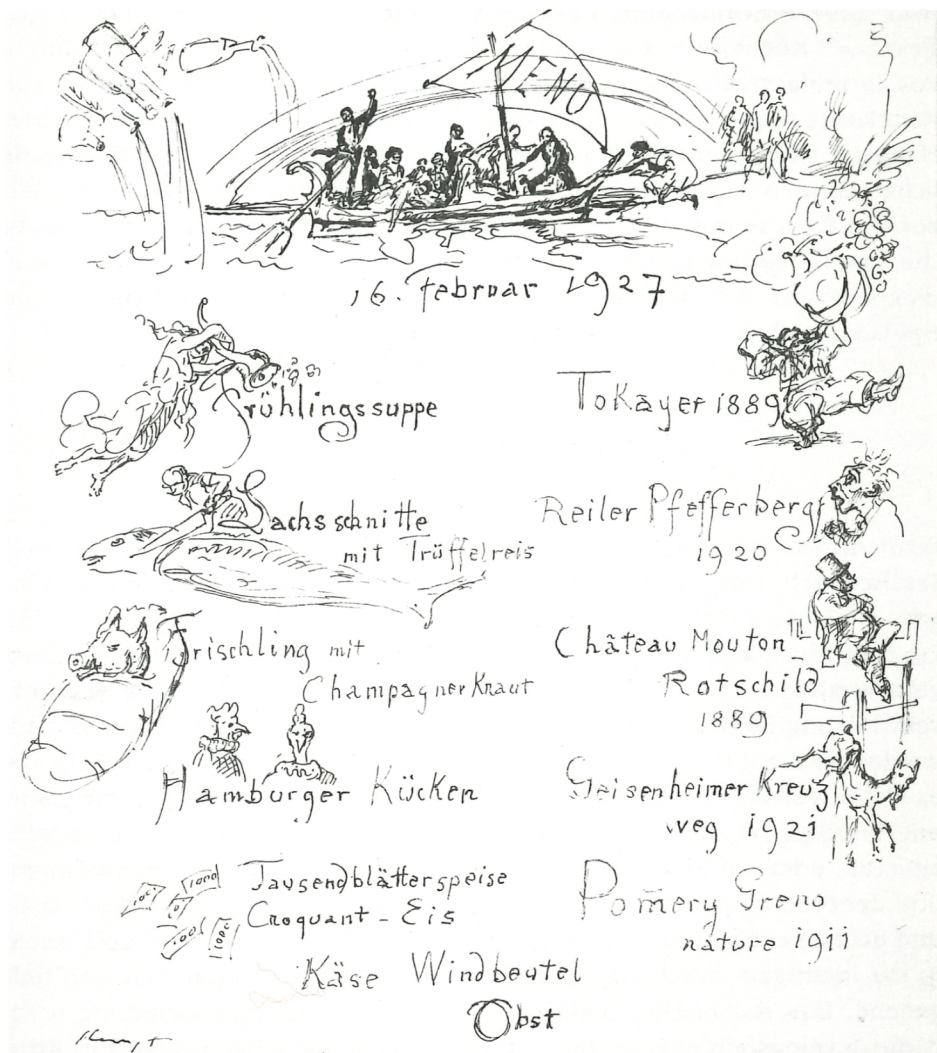 MENU
16. februar 1927
Frühlingssuppe
Lachsschnitte
mit Trüffelreis
Frischling mit
Champagner Kraut
Hamburger Kücken
1000
Tausendblätterspeise
Croquant - Eis
Käse Windbeutel
Obst
Tokayer 1889
Reiler Pfefferberg
1920
Château Mouton
Rotschild
1889
Geisenheimer Kreuz
weg 1921
Pom̄ery Greno
nature 1911